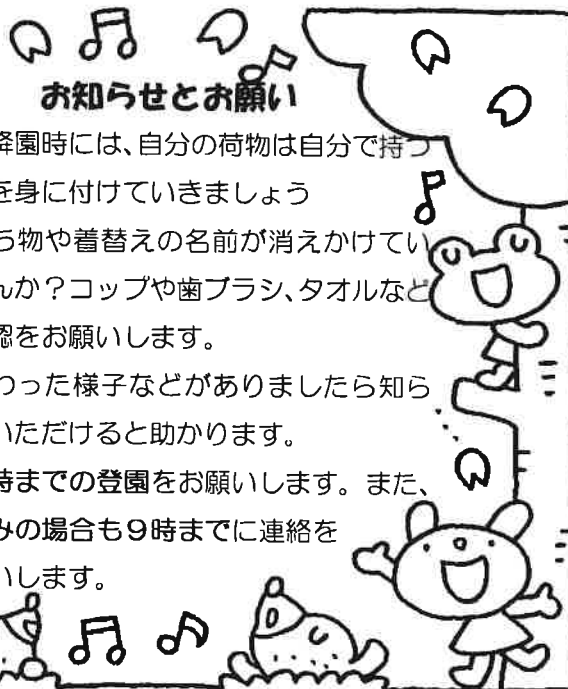 お知らせとお願い
降園時には、自分の荷物は自分で持つ
を身に付けていきましょう
ち物や着替えの名前が消えかけてい
んか？コップや歯ブラシ、タオルなど
認をお願いします。
わった様子などがありましたら知ら
いただけると助かります。
時までの登園をお願いします。また、
みの場合も９時までに連絡を
いします。